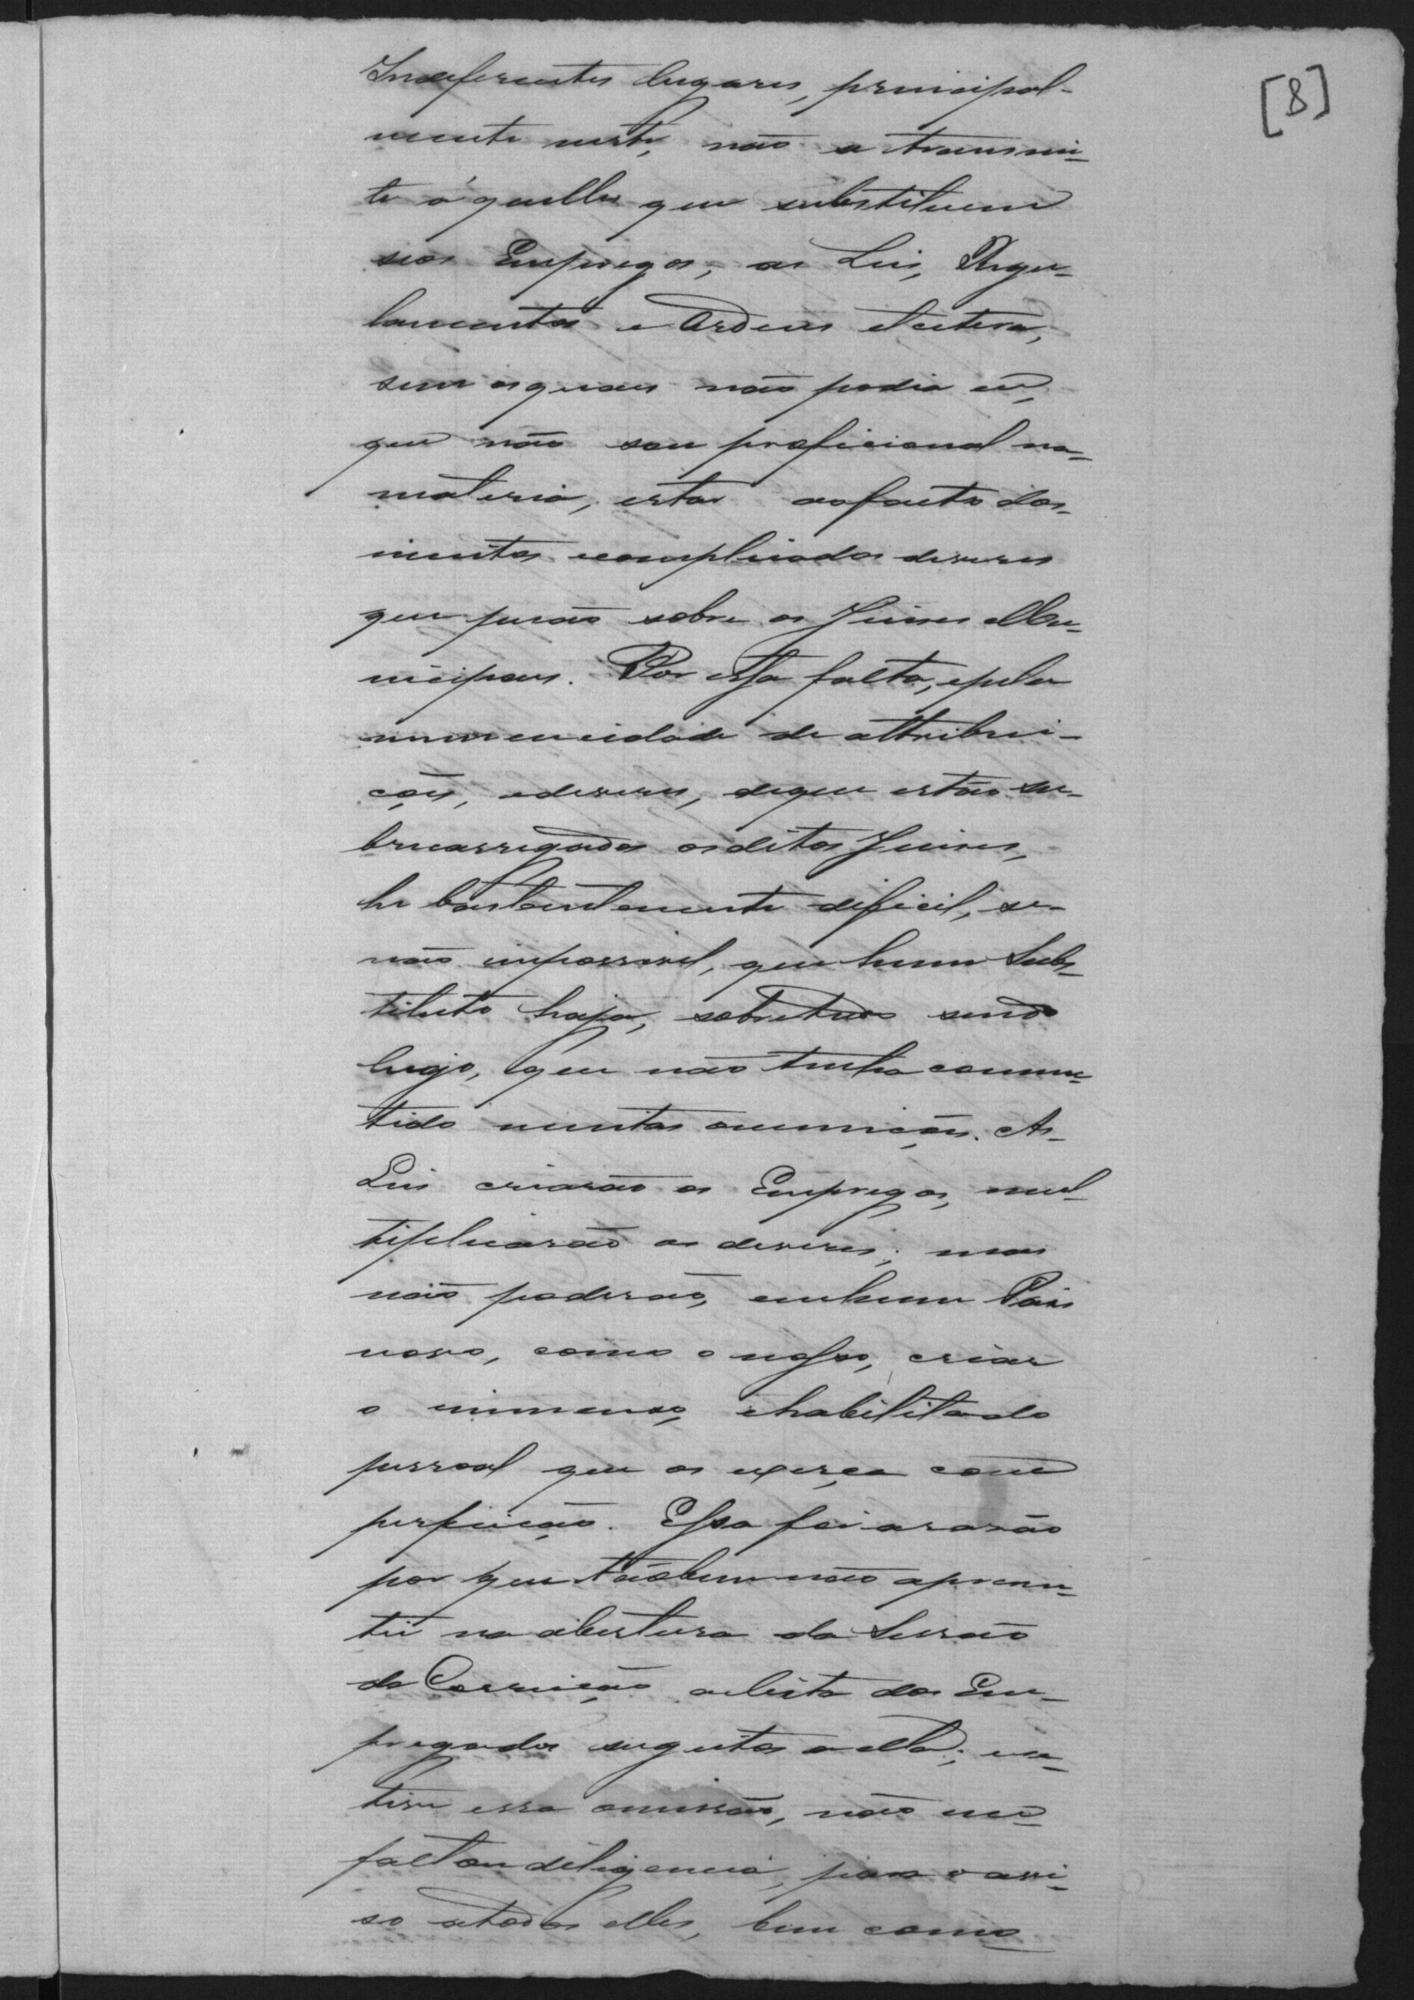 [8]
Indeferentes lugares, principal-
mente neste, não se transmi-
te áquelles que substituem
seos Empregos, as Leis, Regu-
lamentos e Ordens etcetera,
sem os quaes não podia eu,
que não sou proficional na
materia, estar ao facto dos
muitos e complicados deveres
que pesão sobre os Juises Mu-
nicipaes. Por essa falta, e pela
de attribui-
ções, e deveres, de que estão so-
brecarregados os ditos Juises,
he bastantemente dificil, se-
não impossivel, que hum Subs-
tituto haja, sobretudo sendo
leigo, que não tenha comme-
tido muitas ommições. As
Leis criarão os Empregos, mul-
tiplicarão os deveres; mas
não poderão, em hum Pais
novo, como o nosso, criar
o immenso, e habilitado
pessoal que os exerça com
perfeição. Essa foi a rasão
por que tãobem não apresen-
tei na abertura da Sessão
da Correição a lista dos Em-
pregados sugeitos a ella; e se
tive essa omissão, não me
faltou diligencia, para o avi-
so a todos elles, bem como